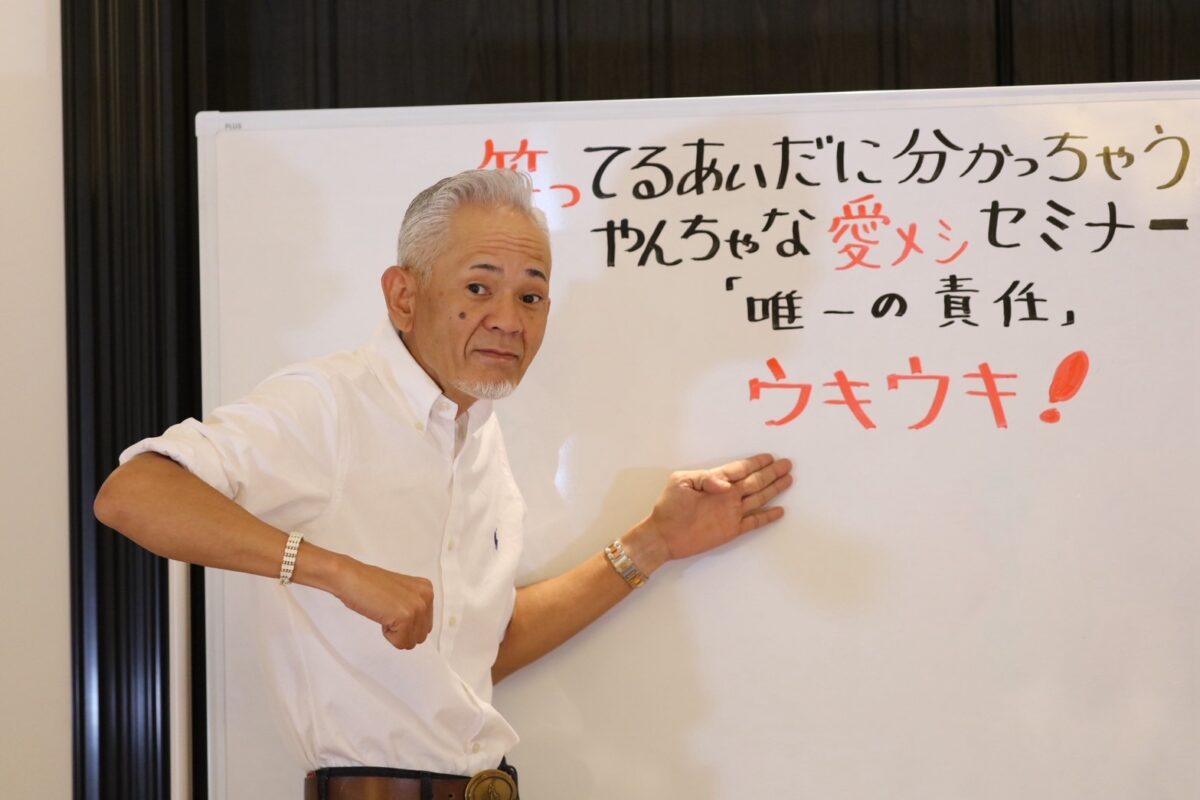 PLUS
笑ってるあいだに分かっちゃう
やんちゃな愛メシセミナー
「唯一の責任」
ウキウキ!